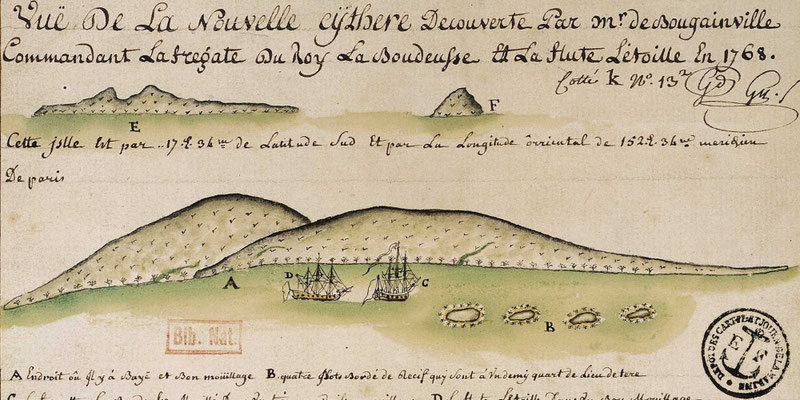 Vuë De La Nouvelle cÿthere Decouverte Par mr. de Bougainville
Commandant La fregate Du Roy La Boudeusse Et La flute L'étoille En 1768.
Cotté k No. 13
E
F
Cette jslle Est par ..17.d. 34m de Latitude Sud Et par La Longitude òrriental de 152.d. 34m meridien
De paris
A
D
C
B
Bib. Nat.
DEPOT DES CARTES ET JOURN. DE LA MARINE
A Endroit où Il y à Baye et Bon mouillage B. quatre jlots Bordé de Recif qui sont à Un demy quart de Lieu de tere